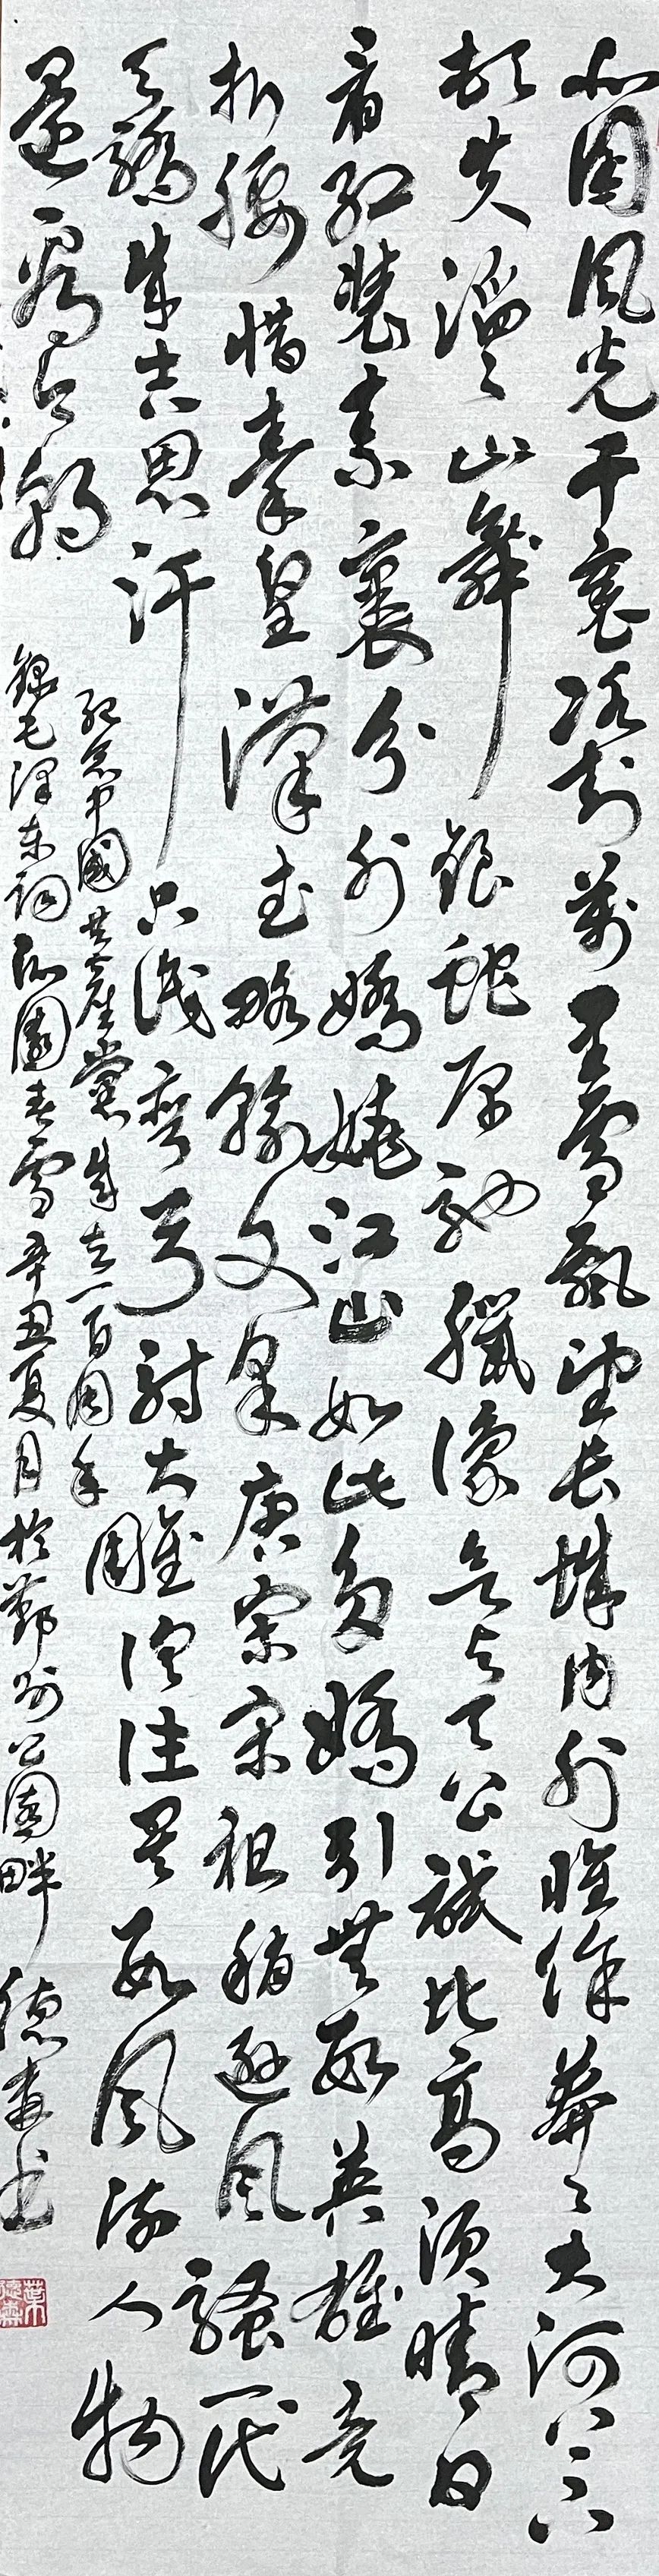 北国风光千裏冰封萬里雪飄望長城内外惟餘莽〻大河上下
頓失滔〻山舞銀蛇原馳臘像欲與天公試比高須晴日
看紅裝素裹分外嬌嬈江山如此多嬌引無數英雄竞
折腰惜秦皇漢武略輸文采唐宗宋祖稍遜風騷一代
天驕成吉思汗只識彎弓射大雕俱往矣數風流人物
還看今朝
紀念中國共產黨成立一百周年
録毛澤东詞沁園春雪辛丑夏月於鄞州公園畔 德书